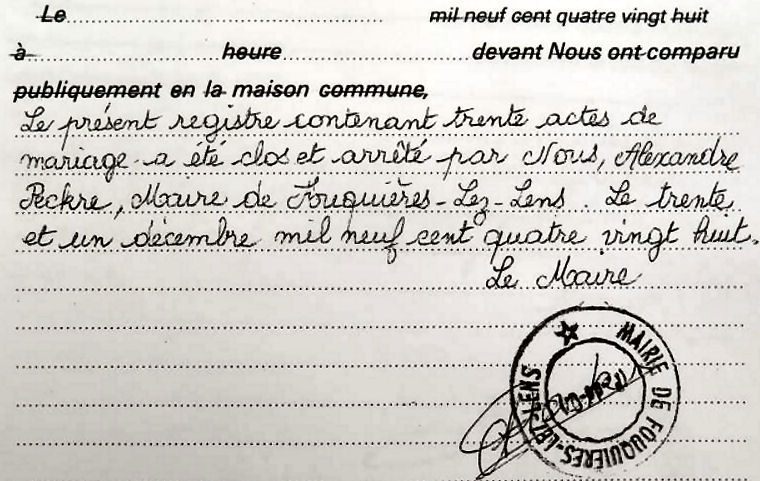 Le mil neuf cent quatre vingt huit
à heure devant Nous ont comparu
publiquement en la maison commune,
Le présent registre contenant trente actes de
mariage a été clos et arrêté par Nous, Alexandre
Peckre, Maire de Fouquières-Lez-Lens. Le trente
et un décembre mil neuf cent quatre vingt huit.
Le Maire
MAIRIE DE FOUQUIERES-LEZ-LENS